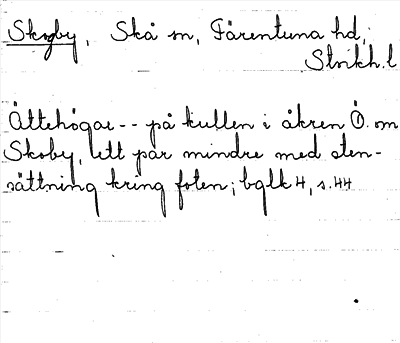 Skogby, Skå sn, Färentuna hd,
Stockh. l
Ättehögar -- på kullen i åkren Ö. om
Skoby, ett par mindre med sten-
sättning kring foten; bqlk 4, s. 44